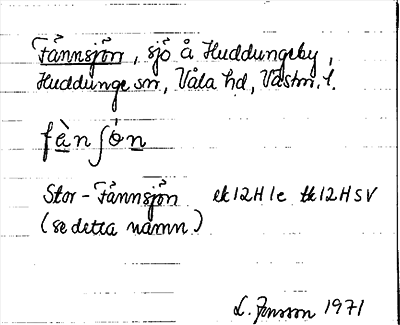 Fännsjön, sjö å Huddungeby,
Huddunge sn, Våla hd, Västm. l.
fä̀nʃön
Stor-Fännsjön ek 12H 1c tk 12H SV
(se detta namn)
L. Jonsson 1971